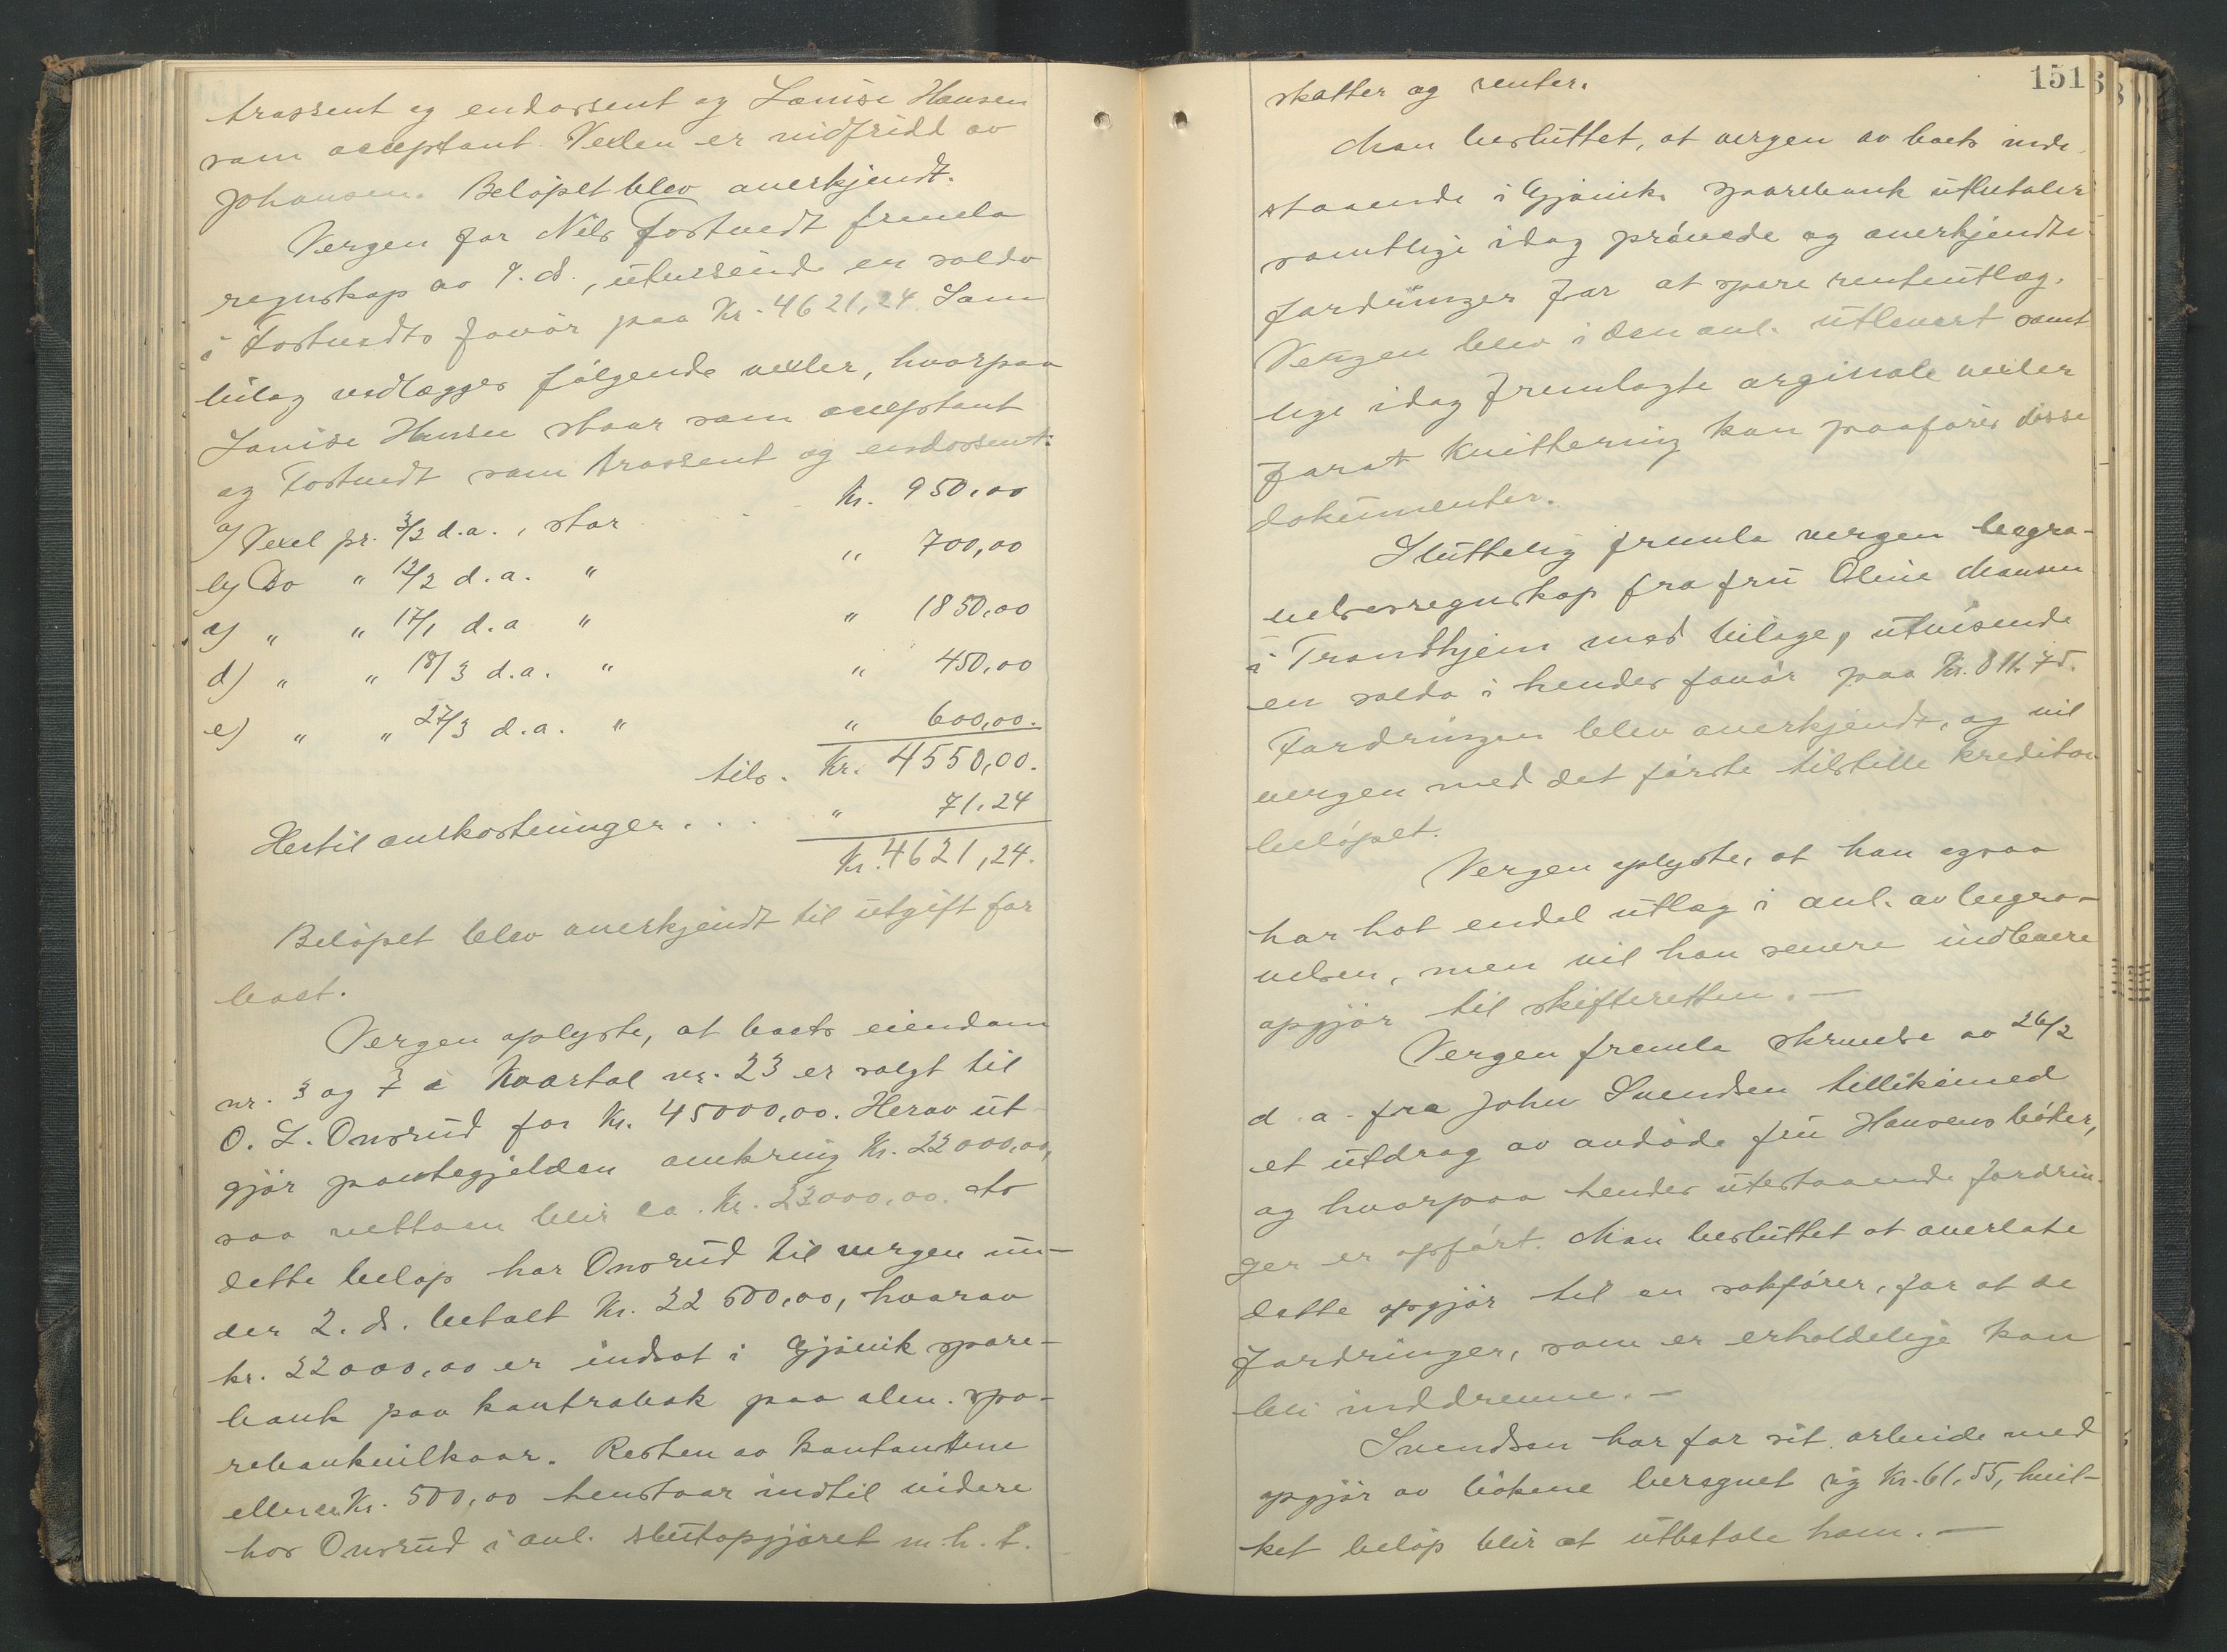 trassent og endossent og Louise Hansen
som acceptant. Vexlen er indfridd av
Johansen. Beløpet blev anerkjendt.
Vergen for Nils Fostvedt fremla
regnskap av 9. ds., utvisende en saldo
i Fostvedts favør paa Kr. 4621,24. Som
bilag vedlægges følgende vexler, hvorpaa
Louise Hansen staar som acceptant
og Fostvedt som trassent og endossent:
a) Vexel pr. 3/2 d.a., stor Kr. 950,00
b) Do " 12/2 d.a. " " 700,00
c) " " 17/1 d.a " " 1850,00
d) " " 18/3 d.a. " " 450,00
e) " " 27/3 d.a. " " 600,00.
tils. Kr. 4550,00.
Hertil omkostninger . . . . " 71,24
Kr. 4621,24.
Beløpet blev anerkjendt til utgift for
boet.
Vergen oplyste, at boets eiendom
nr. 3 og 7 i Kvartal nr. 23 er solgt til
O. L. Onsrud for Kr. 45000,00. Herav ut-
gjør pantegjelden omkring Kr. 22000,00,
saa nettoen blir ca. Kr. 23000,00. Av
dette beløp har Onsrud til vergen un-
der 2. ds. betalt Kr. 22500,00, hvorav
kr. 22000,00 er indsat i Gjøvik spare-
bank paa kontrabok paa alm. spa-
rebankvilkaar. Resten av kontantene
eller ca. Kr. 500,00 henstaar indtil videre
hos Onsrud i anl. slutopgjøret m.h.t.
151
skatter og renter.
Man besluttet, at vergen av boets inde-
staaende i Gjøviks sparebank utbetaler
samtlige idag prøvede og anerkjendte
fordringer for at spare renteutlæg.
Vergen blev i den anl. utlevert samt
lige idag fremlagte orginale vexler
forat kvittering kan paaføres disse
dokumenter.
Sluttelig fremla vergen begra-
velsesregnskap fra fru Oline Hansen
i Trondhjem med bilage, utvisende
en saldo i hendes favør paa Kr. 811.75.
Fordringen blev anerkjendt, og vil
vergen med det første tilstille kreditor
beløpet.
Vergen oplyste, at han ogsaa
har hat endel utlæg i anl. av begra-
velsen, men vil han senere indlevere
opgjør til skifteretten. —
Vergen fremla skrivelse av 26/2
d. a. fra John Svendsen tillikemed
et utdrag av avdøde fru Hansens bøker,
og hvorpaa hendes utestaaende fordrin-
ger er opført. Man besluttet at overlate
dette opgjør til en sakfører, for at de
fordringer, som er erholdelige kan
bli inddrevne. —
Svendsen har for sit arbeide med
opgjør av bøkene beregnet sig Kr. 61,55, hvil-
ket beløp blir at utbetale ham. —